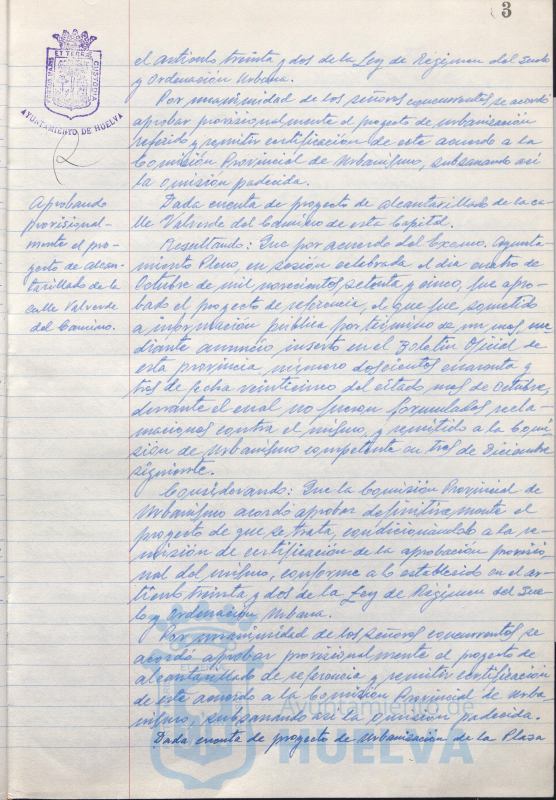 3
PORTUS MARIS ET TERRE CUSTODIA
AYUNTAMIENTO, DE HUELVA
el artículo treinta y dos de la Ley de Régimen del Suelo
y Ordenación Urbana.
Por unanimidad de los señores concurrentes se acordó
aprobar provisionalmente el proyecto de urbanización
referido y remitir certificación de este acuerdo a la
Comisión Provincial de Urbanismo, subsanando así
la omisión padecida.
Aprobando
provisional-
mente el pro-
yecto de alcan-
tarillado de la
calle Valverde
del Camino.
Dada cuenta de proyecto de alcantarillado de la ca-
lle Valverde del Camino de esta Capital.
Resultando: Que por acuerdo del Excmo. Ayunta
miento Pleno, en sesión celebrada el día cuatro de
Octubre de mil novecientos setenta y cinco, fue apro-
bado el proyecto de referencia, el que fue sometido
a información pública por término de un mes me-
diante anuncio inserto en el Boletín Oficial de
esta provincia, número doscientos cuarenta y
tres de fecha veinticinco del citado mes de Octubre,
durante el cual no fueron formuladas recla-
maciones contra el mismo, y remitido a la Comi
sión de Urbanismo competente en tres de Diciembre
siguiente.
Considerando: Que la Comisión Provincial de
Urbanismo acordó aprobar definitivamente el
proyecto de que se trata, condicionándolo a la re-
misión de certificación de la aprobación provisio
nal del mismo, conforme a lo establecido en el ar-
tículo treinta y dos de la Ley de Régimen del Sue-
lo y Ordenación Urbana.
Por unanimidad de los señores concurrentes se
acordó aprobar provisionalmente el proyecto de
alcantarillado de referencia y remitir certificación
de este acuerdo a la Comisión Provincial de Urba
nismo, subsanando así la omisión padecida.
Dada cuenta de proyecto de Urbanización de la Plaza
Ayuntamiento de
HUELVA